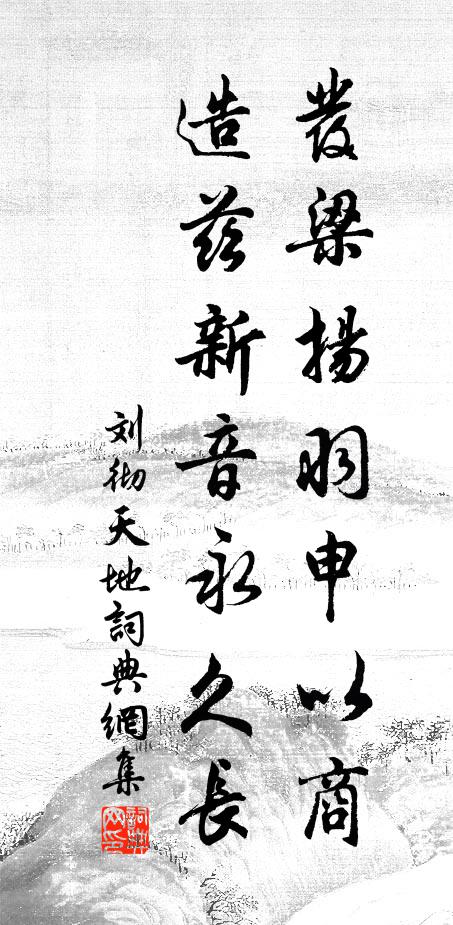 發梁揚羽申以商
造茲新音永久長
刘彻天地詞典網集